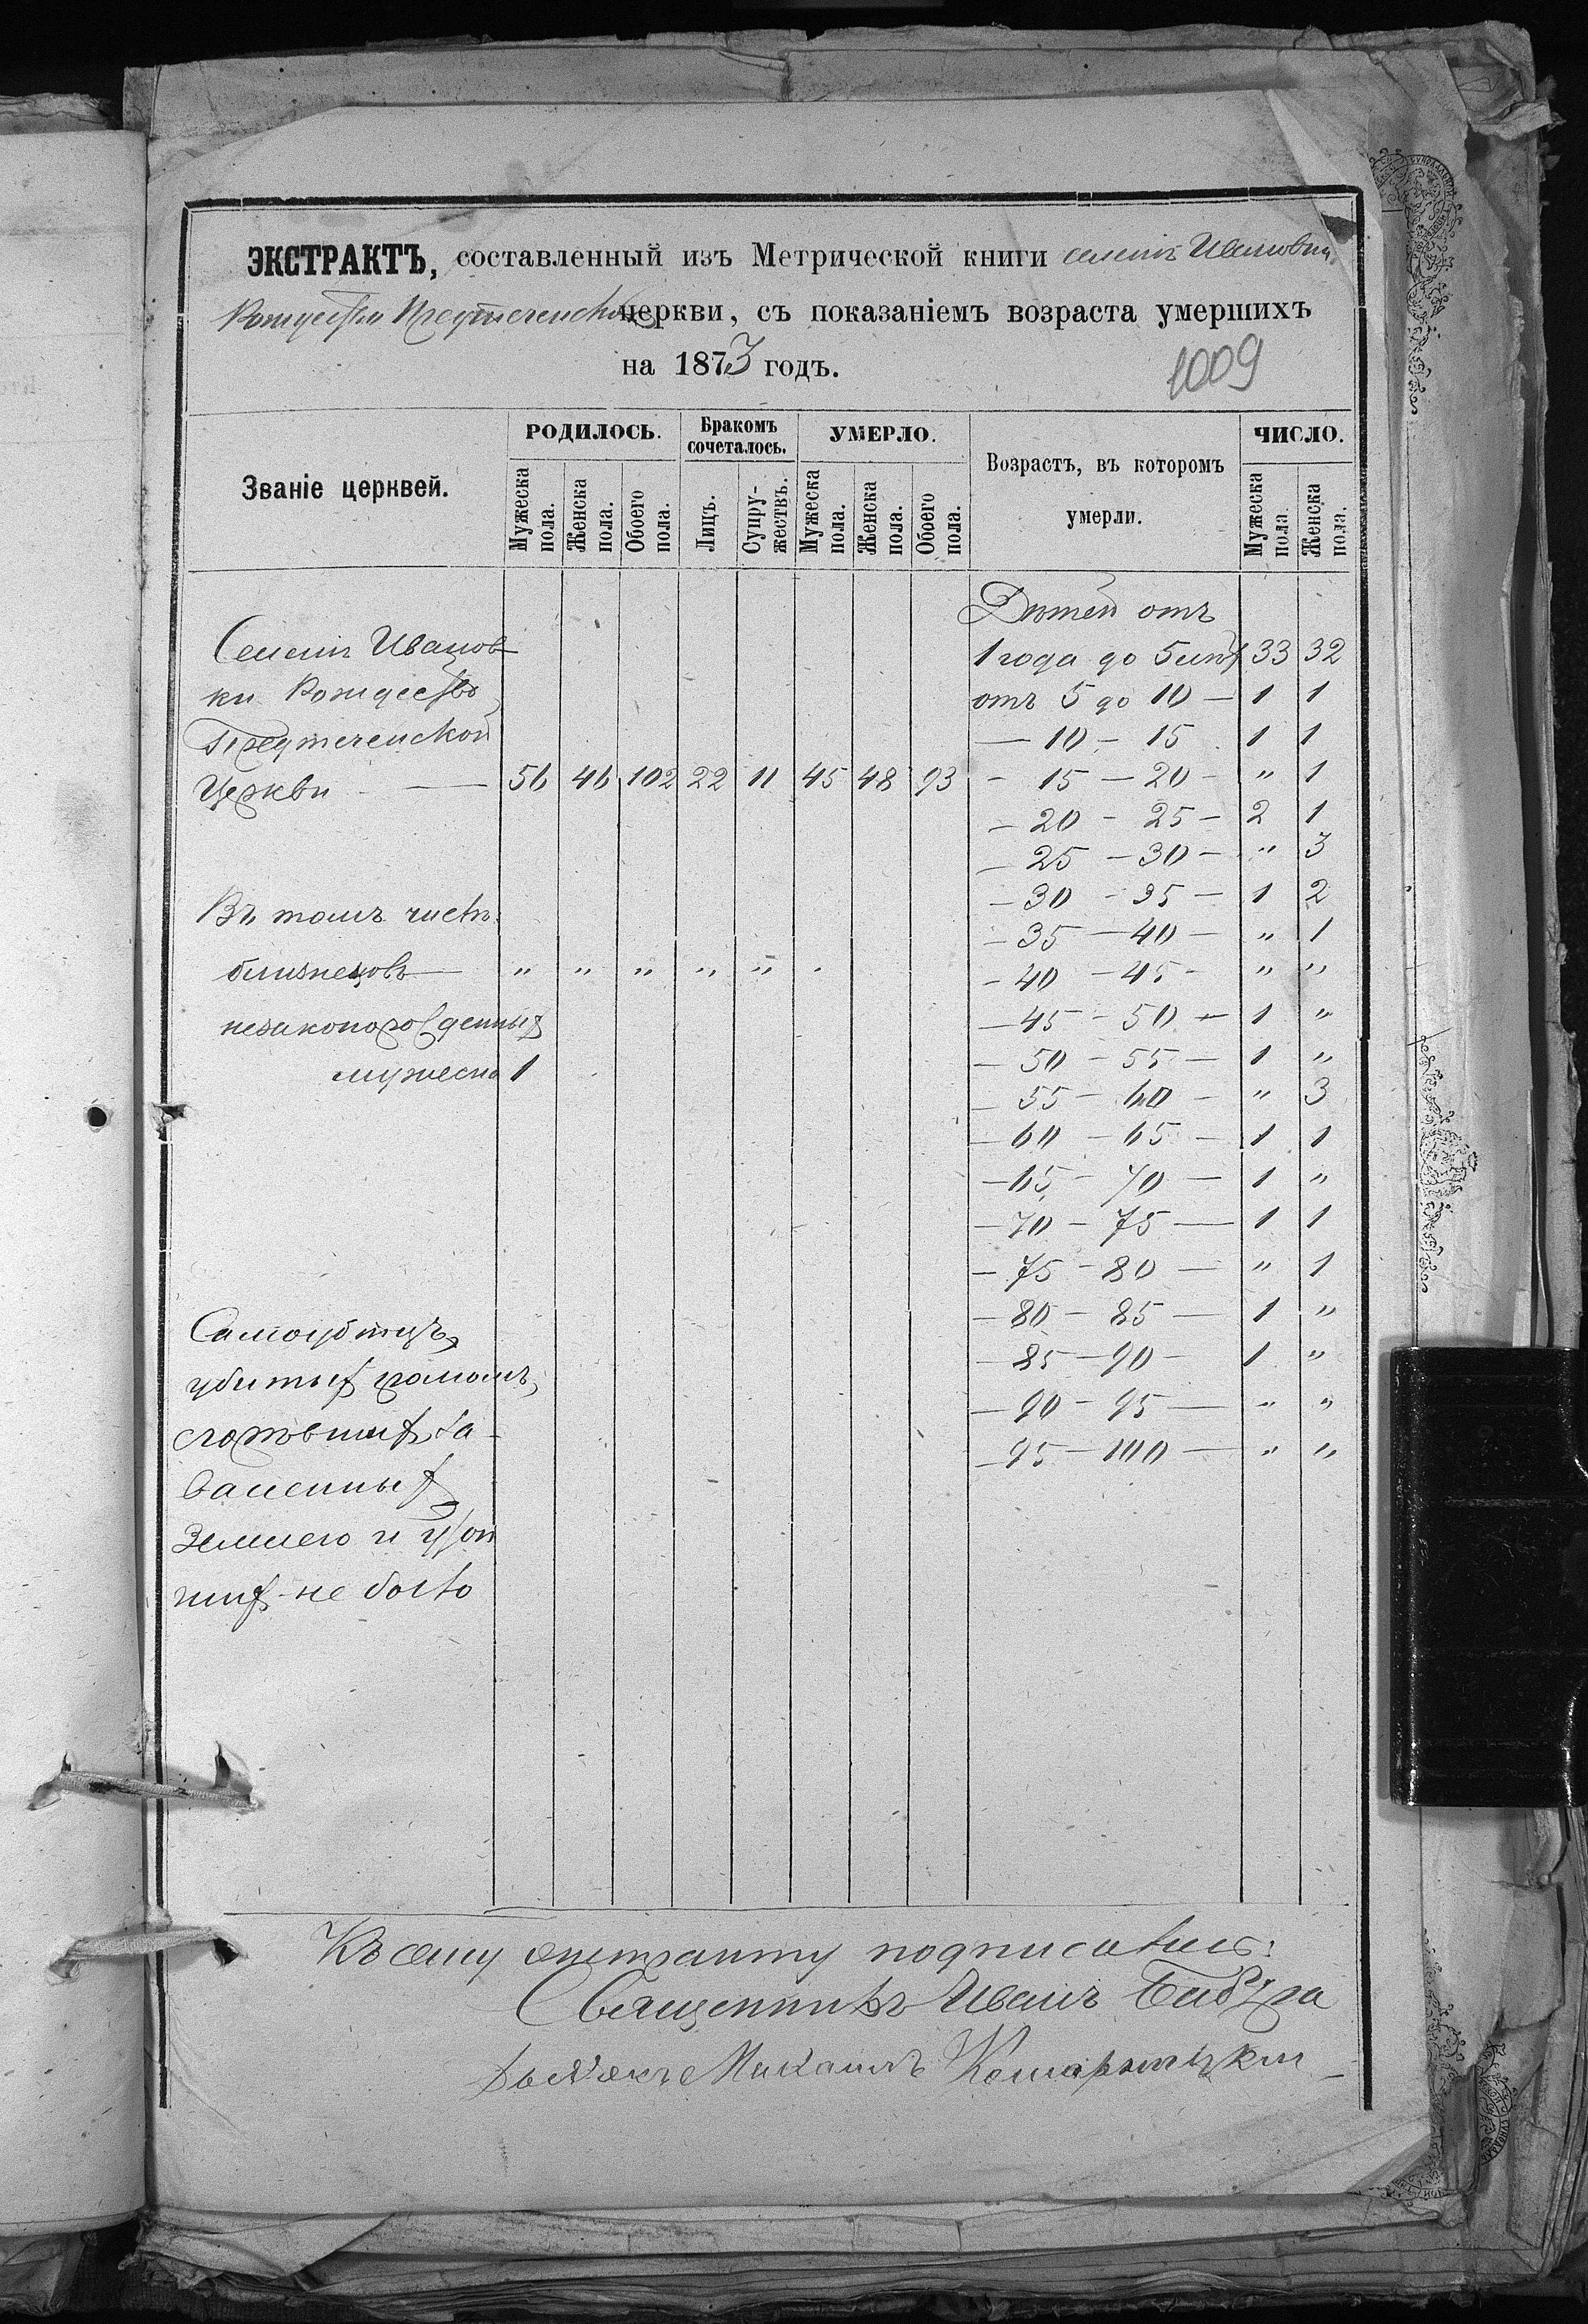 ЭКСТРАКТЪ, составленный изъ Метрической книги селенія Ивановки,
Рождество Предтеченской церкви, съ показаніемъ возраста умершихъ
на 1873 годъ.
1009
Званіе церквей.
РОДИЛОСЬ.
Бракомъ сочеталось.
УМЕРЛО.
Возрастъ, въ которомъ умерли.
ЧИСЛО.
Мужеска пола.
Женска пола.
Обоего пола.
Лицъ.
Супружествъ.
Мужеска пола.
Женска пола.
Обоего пола.
Мужеска пола.
Женска пола.
Дѣтей отъ
Селенія Иванов-
1 года до 5 лѣтъ 33 32
ки Рождество
отъ 5 до 10 — 1 1
Предтеченской
— 10 — 15 1 1
Церкви — 56 46 102 22 11 45 48 93
— 15 — 20 — " 1
— 20 — 25 — 2 1
— 25 — 30 — " 3
— 30 — 35 — 1 2
Въ томъ числѣ:
— 35 — 40 — " 1
близнецовъ — " " " " "
— 40 — 45 — " "
незаконорожденныхъ
— 45 — 50 — 1 "
— 50 — 55 — 1 "
мужеска 1
— 55 — 60 — " 3
— 60 — 65 — 1 1
— 65 — 70 — 1 "
— 70 — 75 — 1 1
— 75 — 80 — " 1
— 80 — 85 — 1 "
Самоубійцъ,
— 85 — 90 — 1 "
убитыхъ громомъ,
— 90 — 95 — " "
сгорѣвшихъ, за-
— 95 — 100 — " "
валенныхъ
Землею и
не было
Къ сему экстракту подписались:
Священникъ Иванъ
Михаилъ